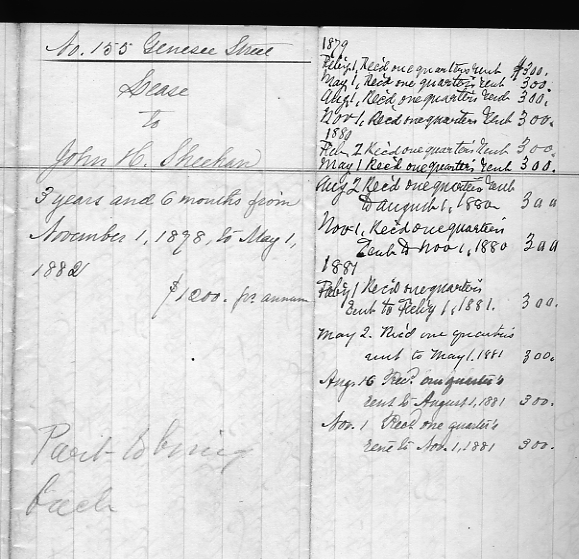 No. 155 Genesee Street
Lease
to
John H. Sheehan
3 years and 6 months from
November 1, 1878, to May 1,
1882
$1200. per annum
back
1879
Feby 1, Rec'd one quarter's rent $300.
May 1, Rec'd one quarter's rent 300.
Aug 1, Rec'd one quarter's rent 300.
Nov 1, Rec'd one quarter's rent 300.
1880
Feb 2 Rec'd one quarter's rent 300.
May 1 Rec'd one quarter's rent 300.
Aug 2 Rec'd one quarter's rent
to august 1, 1880 300
Nov 1, Rec'd one quarter's
rent to Nov 1, 1880 300
1881
Feby 1 Rec'd one quarter's
rent to Feb'y 1, 1881. 300.
May 2. Rec'd one quarter's
rent to May 1, 1881 300.
Aug. 16 Rec'd one quarter's
rent to August 1, 1881 300.
Nov. 1 Rec'd one quarter's
rent to Nov. 1, 1881 300.